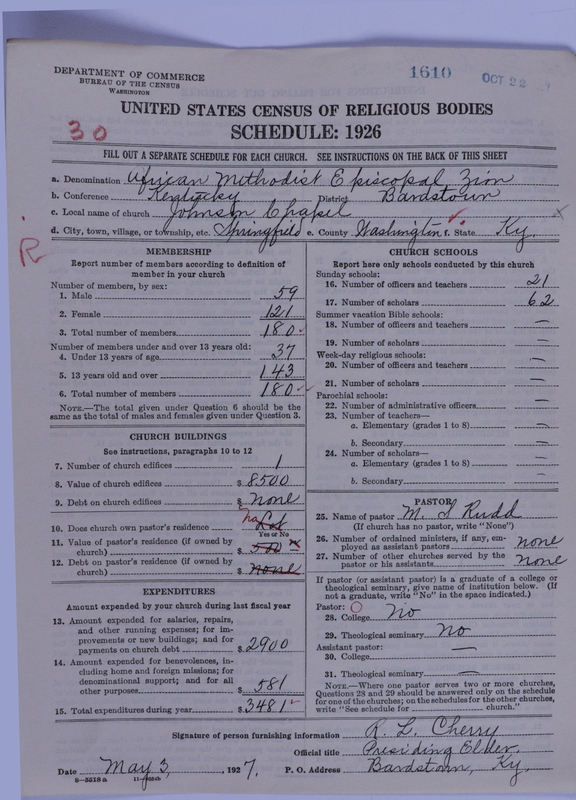 1610
OCT 22
DEPARTMENT OF COMMERCE
BUREAU OF THE CENSUS
WASHINGTON
UNITED STATES CENSUS OF RELIGIOUS BODIES
30
SCHEDULE: 1926
FILL OUT A SEPARATE SCHEDULE FOR EACH CHURCH. SEE INSTRUCTIONS ON THE BACK OF THIS SHEET
a. Denomination African Methodist Episcopal Zion
b. Conference Kentucky District Bardstown
c. Local name of church Johnson Chapel
d. City, town, village, or township, etc. Springfield e. County Washington f. State Ky.
R
MEMBERSHIP
Report number of members according to definition of
member in your church
Number of members, by sex:
1. Male 59
2. Female 121
3. Total number of members 180
Number of members under and over 13 years old:
4. Under 13 years of age 37
5. 13 years old and over 143
6. Total number of members 180
NOTE.—The total given under Question 6 should be
the same as the total of males and females given under Question 3.
CHURCH BUILDINGS
See instructions, paragraphs 10 to 12
7. Number of church edifices 1
8. Value of church edifices $ 8500
9. Debt on church edifices $ none
10. Does church own pastor's residence no Lot
Yes or No
11. Value of pastor's residence (if owned by
church) $ 500
12. Debt on pastor's residence (if owned by
church) $ none
EXPENDITURES
Amount expended by your church during last fiscal year
13. Amount expended for salaries, repairs,
and other running expenses; for im-
provements or new buildings; and for
payments on church debt $ 2900
14. Amount expended for benevolences, in-
cluding home and foreign missions; for
denominational support; and for all
other purposes $ 581
15. Total expenditures during year $ 3481
CHURCH SCHOOLS
Report here only schools conducted by this church
Sunday schools:
16. Number of officers and teachers 21
17. Number of scholars 62
Summer vacation Bible schools:
18. Number of officers and teachers —
19. Number of scholars —
Week-day religious schools:
20. Number of officers and teachers —
21. Number of scholars —
Parochial schools:
22. Number of administrative officers —
23. Number of teachers—
a. Elementary (grades 1 to 8) —
b. Secondary —
24. Number of scholars—
a. Elementary (grades 1 to 8) —
b. Secondary —
PASTOR
25. Name of pastor M. I Rudd
(If church has no pastor, write "None")
26. Number of ordained ministers, if any, em-
ployed as assistant pastors none
27. Number of other churches served by the
pastor or his assistants none
If pastor (or assistant pastor) is a graduate of a college or
theological seminary, give name of institution below. (If
not a graduate, write "No" in the space indicated.)
Pastor:
28. College No
29. Theological seminary No
Assistant pastor:
30. College —
31. Theological seminary —
NOTE.—Where one pastor serves two or more churches,
Questions 28 and 29 should be answered only on the schedule
for one of the churches; on the schedules for the other churches,
write "See schedule for church."
Signature of person furnishing information R. L. Cherry
Official title Presiding Elder
Date May 3, 1927. P. O. Address Bardstown, Ky.
8—5218a